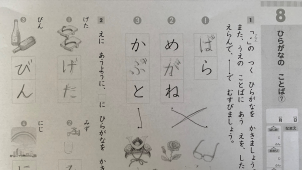 8
ひらがなの ことば?
1 「゛」の つく ひらがなを かきましょう。
また、うえの ことばに あう えを、した
えらんで、――で むすびましょう。
1 ばら
2 めがね
3 かぶと
2 えに あうように、□に ひらがなを か
げた
げた
びん
みず
にじ